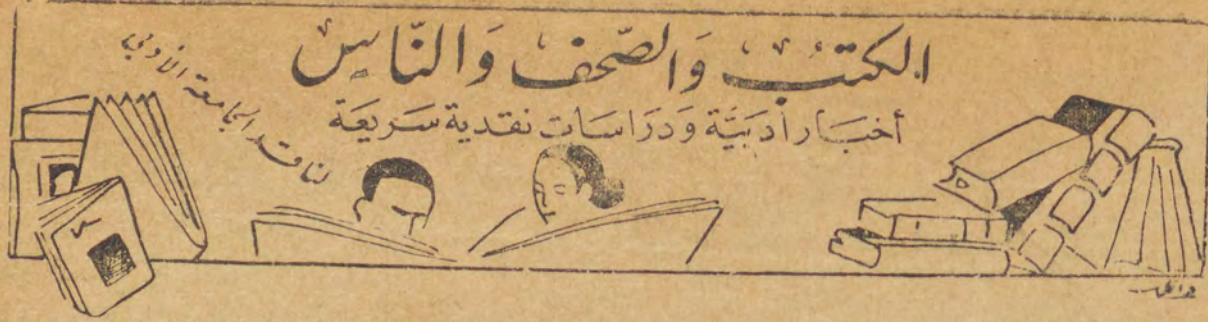 الكتب وَالصّحف وَالنّاس
أخبار أدبيّة وَدرَاسَات نقدية سَريعَة
لناقد الجامعة الأدبي